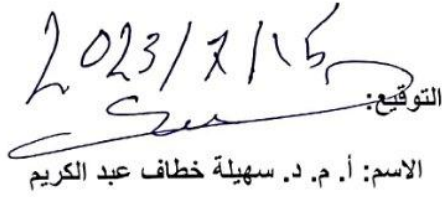 2023/7/15
التوقيع:
الاسم: أ. م. د. سهيلة خطاف عبد الكريم